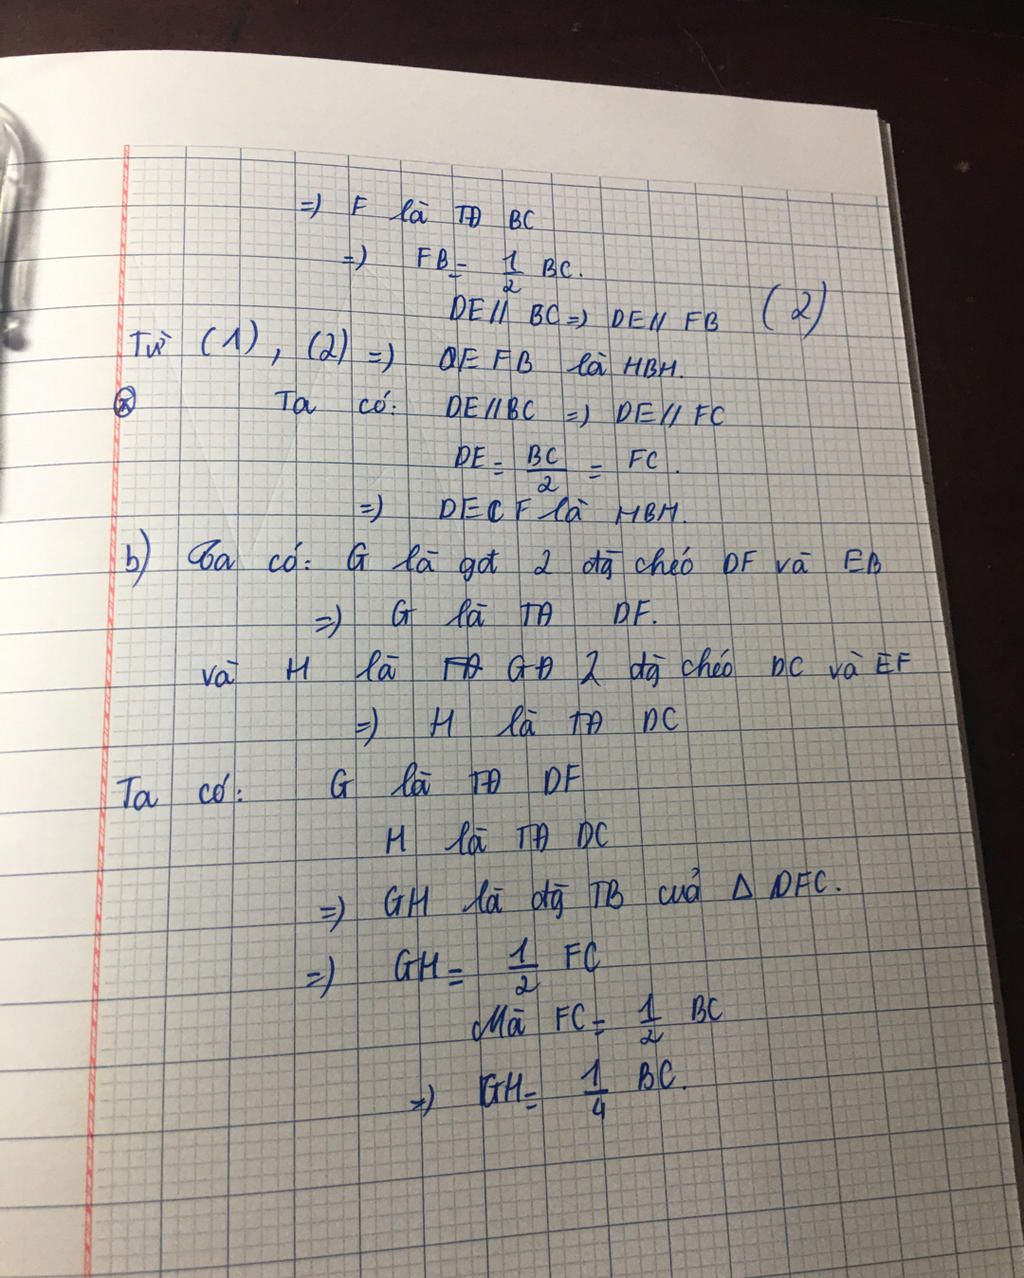 =) F là TĐ BC
=) FB = 1/2 BC.
DE // BC =) DE // FB (2)
Từ (1), (2) =) DEFB là HBH.
* Ta có: DE // BC =) DE // FC
DE = BC/2 = FC.
=) DECF là HBH.
b) Ta có: G là gđ 2 đg chéo DF và EB
=) G là TĐ DF.
và H là GĐ 2 đg chéo DC và EF
=) H là TĐ DC
Ta có: G là TĐ DF
H là TĐ DC
=) GH là đg TB cuả Δ DFC.
=) GH = 1/2 FC
Mà FC = 1/2 BC
=) GH = 1/4 BC.